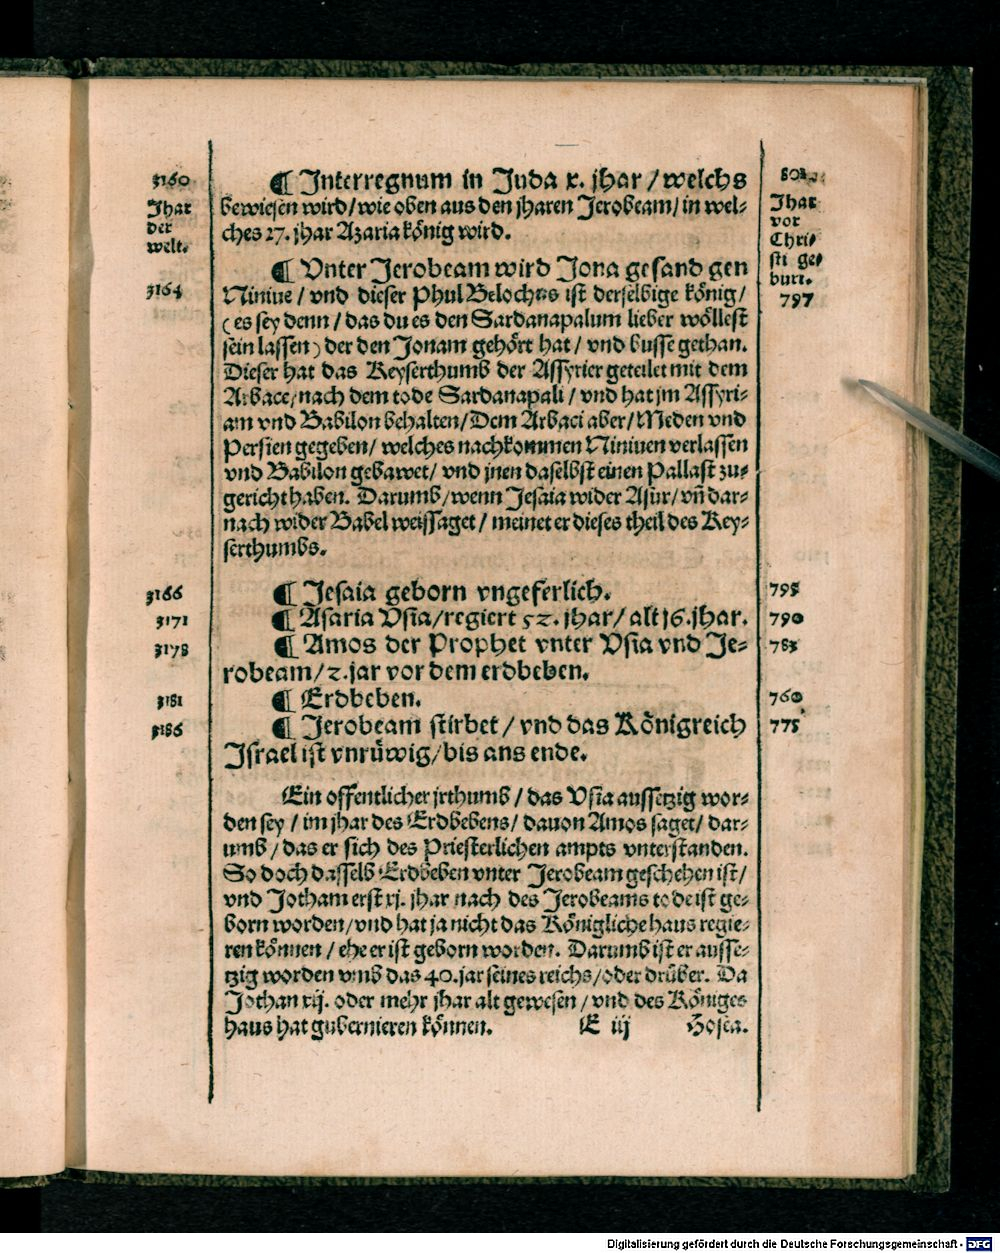 3160
¶ Interregnum in Juda x. jhar / welchs
802
Jhar
der
welt.
bewiesen wird / wie oben aus den jharen Jerobeam / in wel-
ches 27. jhar Azaria könig wird.
Jhar
vor
Chri-
sti ge-
burt.
¶ Vnter Jerobeam wird Jona gesand gen
3164
Niniue / vnd dieser Phul Belochus ist derselbige könig /
797
( es sey denn / das du es den Sardanapalum lieber wöllest
sein lassen ) der den Jonam gehört hat / vnd busse gethan.
Dieser hat das Keyserthumb der Assyrier geteilet mit dem
Arbace / nach dem tode Sardanapali / vnd hat jm Assyri-
am vnd Babilon behalten / Dem Arbaci aber / Meden vnd
Persien gegeben / welches nachkommen Niniuen verlassen
vnd Babilon gebawet / vnd jnen daselbst einen Pallast zu-
gericht haben. Darumb / wenn Jesaia wider Assur / vñ dar-
nach wider Babel weissaget / meinet er dieses theil des Key-
serthumbs.
3166
¶ Jesaia geborn vngeferlich.
795
3171
¶ Asaria Vsia / regiert 52. jhar / alt 16. jhar.
790
3178
¶ Amos der Prophet vnter Vsia vnd Je-
783
robeam / 2. jar vor dem erdbeben.
3181
¶ Erdbeben.
760
3186
¶ Jerobeam stirbet / vnd das Königreich
775
Israel ist vnrüwig / bis ans ende.
Ein offentlicher jrthumb / das Vsia aussetzig wor-
den sey / im jhar des Erdbebens / dauon Amos saget / dar-
umb / das er sich des Priesterlichen ampts vnterstanden.
So doch dasselb Erdbeben vnter Jerobeam geschehen ist /
vnd Jotham erst xj. jhar nach des Jerobeams tode ist ge-
born worden / vnd hat ja nicht das Königliche haus regie-
ren können / ehe er ist geborn worden. Darumb ist er ausse-
tzig worden vmb das 40. jar seines reichs / oder drüber. Da
Jothan xij. oder mehr jhar alt gewesen / vnd des Königes
haus hat gubernieren können.
E iij
Hosea.
Digitalisierung gefördert durch die Deutsche Forschungsgemeinschaft - DFG